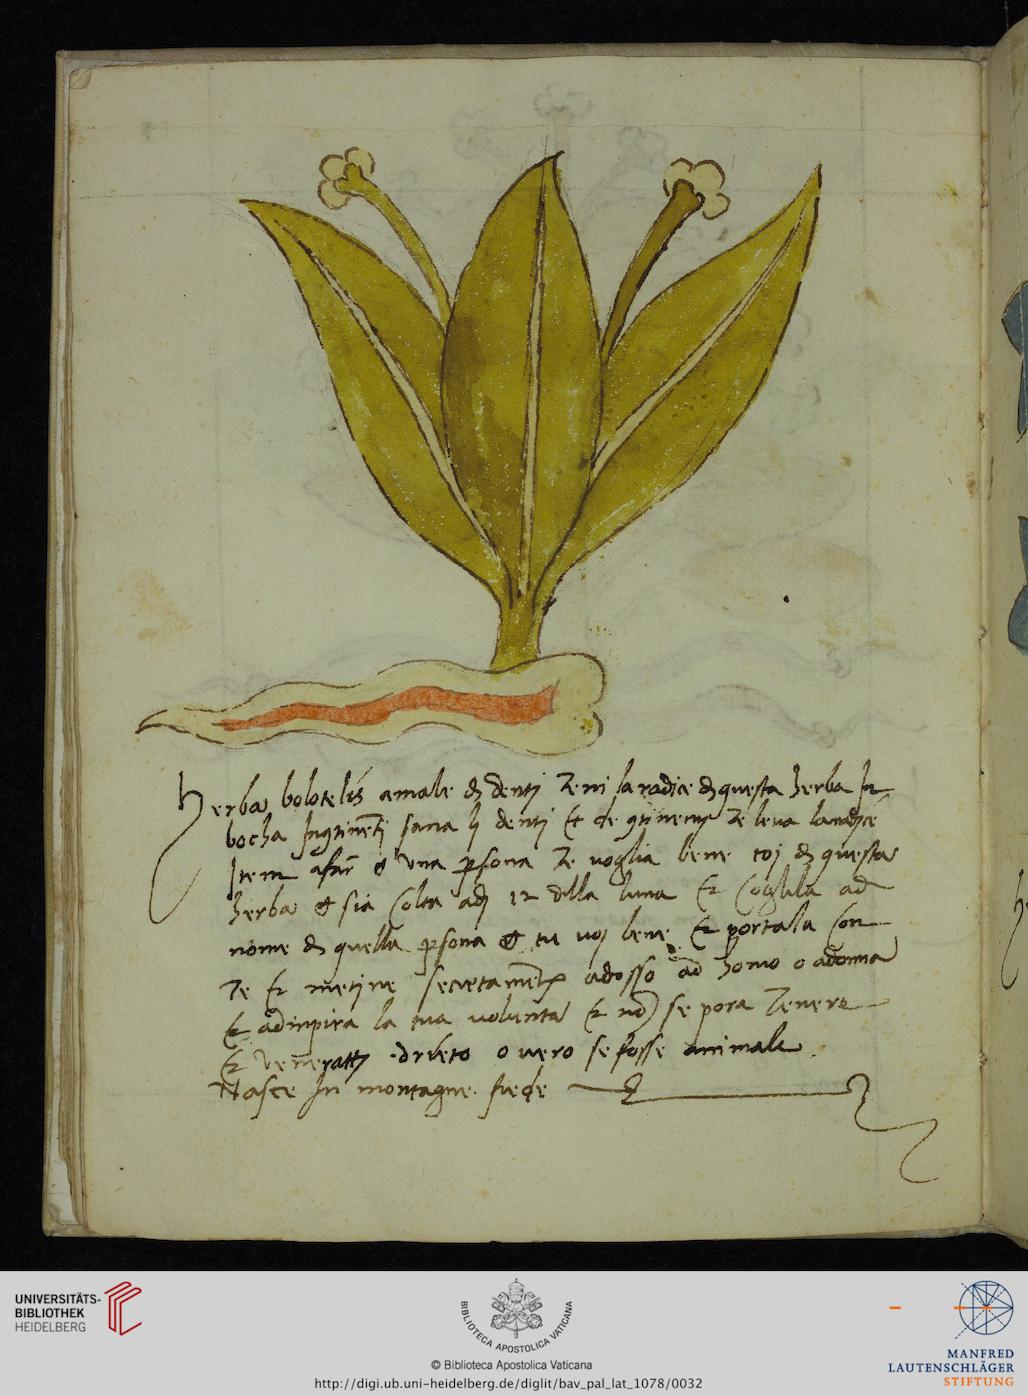 Herba bolotelis amale di denti teni la radice di questa herba In
bocha sana li denti et te leva
Item a far che una persona te voglia bene toi di questa
herba che sia colta adi 12 della luna et coglila ad
nome di quella persona che tu voi bene et portala con
te et metine secretamente adosso ad homo o adonna
et la tua volunta et non se pora tenere
et drieto overo se fosse animale.
Nasce In montagne frede
UNIVERSITÄTS-
BIBLIOTHEK
HEIDELBERG
BIBLIOTECA APOSTOLICA VATICANA
© Biblioteca Apostolica Vaticana
http://digi.ub.uni-heidelberg.de/diglit/bav_pal_lat_1078/0032
MANFRED
LAUTENSCHLÄGER
STIFTUNG